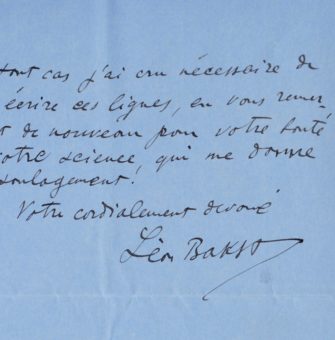 tout cas j'ai cru nécessaire de
écrire ces lignes, en vous remer-
t de nouveau pour votre bonté
otre science, qui me donne
soulagement!
Votre cordialement devoué
Léon Bakst